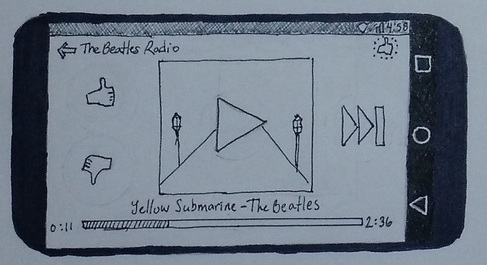 The Beatles Radio
Yellow Submarine - The Beatles
0:11 2:36